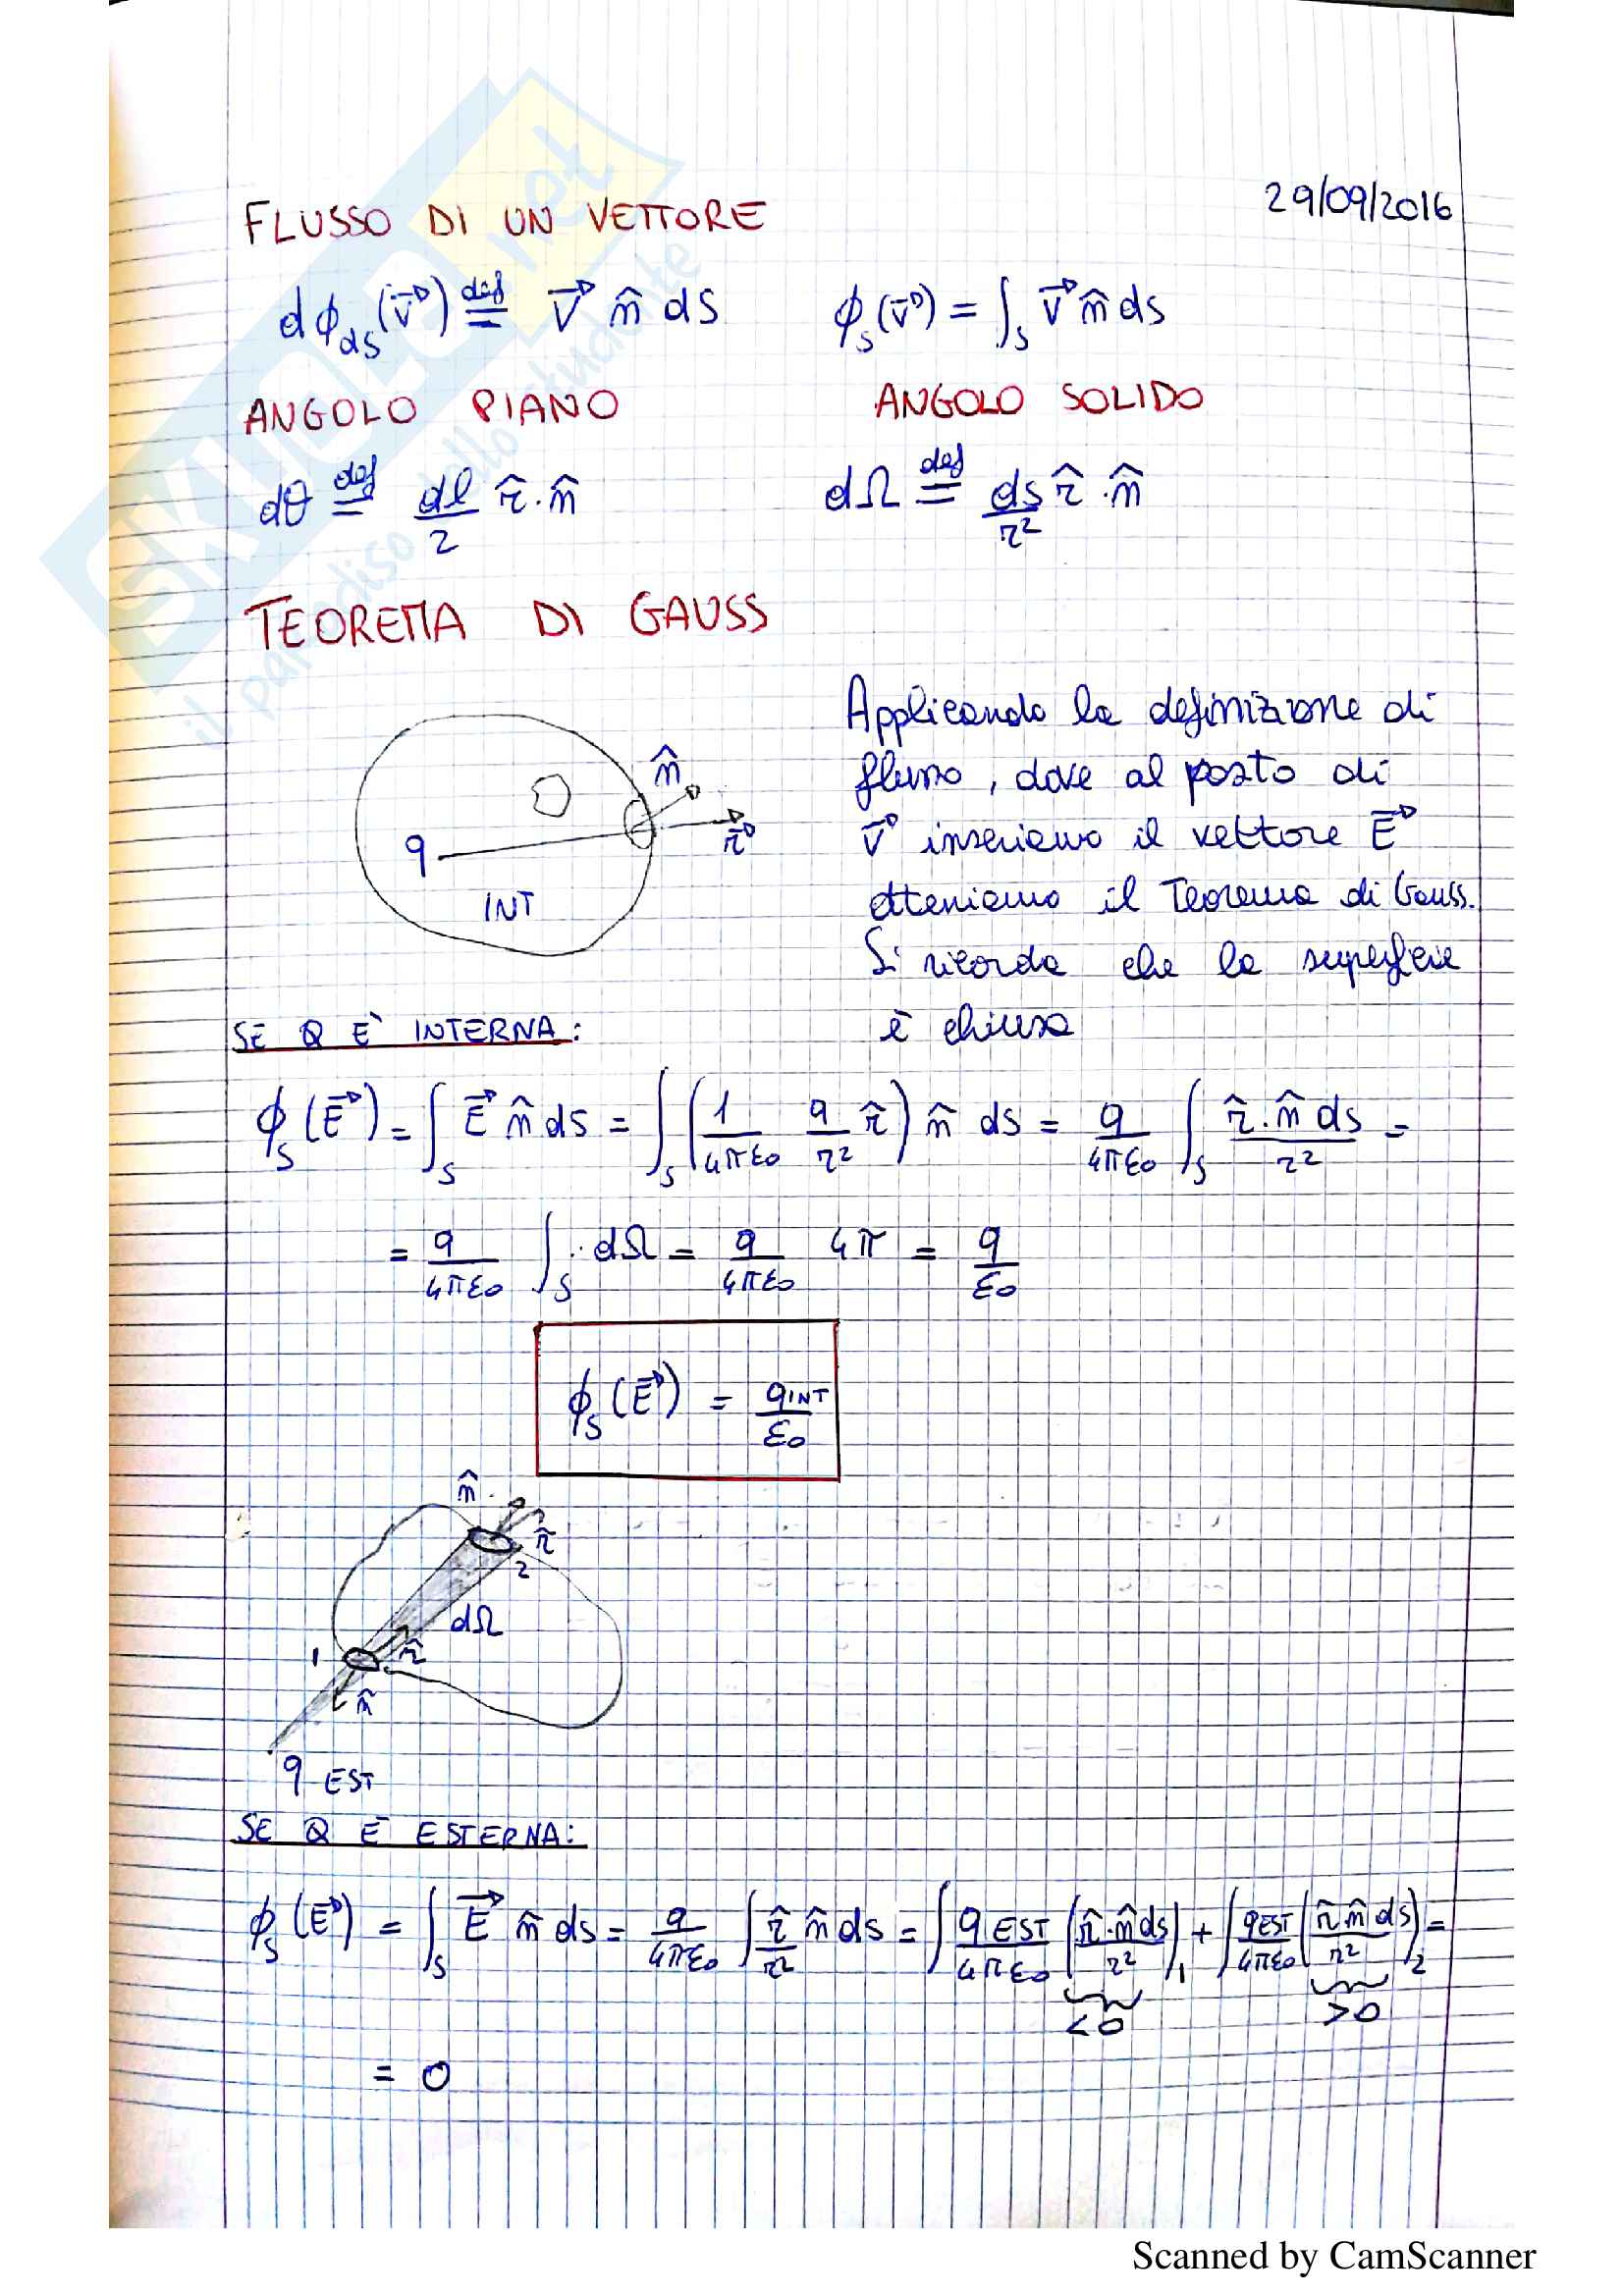 29/09/2016
FLUSSO DI UN VETTORE
dϕ_dS (V⃗) ≝ V⃗ n̂ dS    ϕ_S (V⃗) = ∫_S V⃗ n̂ dS
ANGOLO PIANO    ANGOLO SOLIDO
dθ ≝ dl/r r̂ · n̂    dΩ ≝ ds/r² r̂ · n̂
TEOREMA DI GAUSS
Applicando la definizione di
flusso, dove al posto di
V⃗ inseriamo il vettore E⃗
otteniamo il Teorema di Gauss.
Si ricorda che la superficie
è chiusa
n̂
r⃗
q
INT
SE Q E' INTERNA:
ϕ_S (E⃗) = ∫_S E⃗ n̂ dS = ∫_S (1/4πε₀ q/r² r̂) n̂ dS = q/4πε₀ ∫_S r̂ · n̂ dS/r² =
= q/4πε₀ ∫_S dΩ = q/4πε₀ 4π = q/ε₀
ϕ_S (E⃗) = q INT/ε₀
n̂
r̂
2
dΩ
1
r̂
n̂
q EST
SE Q È ESTERNA:
ϕ_S (E⃗) = ∫_S E⃗ n̂ ds = q/4πε₀ ∫ r̂/r² n̂ ds = ∫ q EST/4πε₀ (r̂ · n̂ ds/r²)₁ + ∫ q EST/4πε₀ (r̂ n̂ ds/r²)₂ =
< 0    > 0
= 0
SKUOLA.net
il paradiso dello studente
Scanned by CamScanner